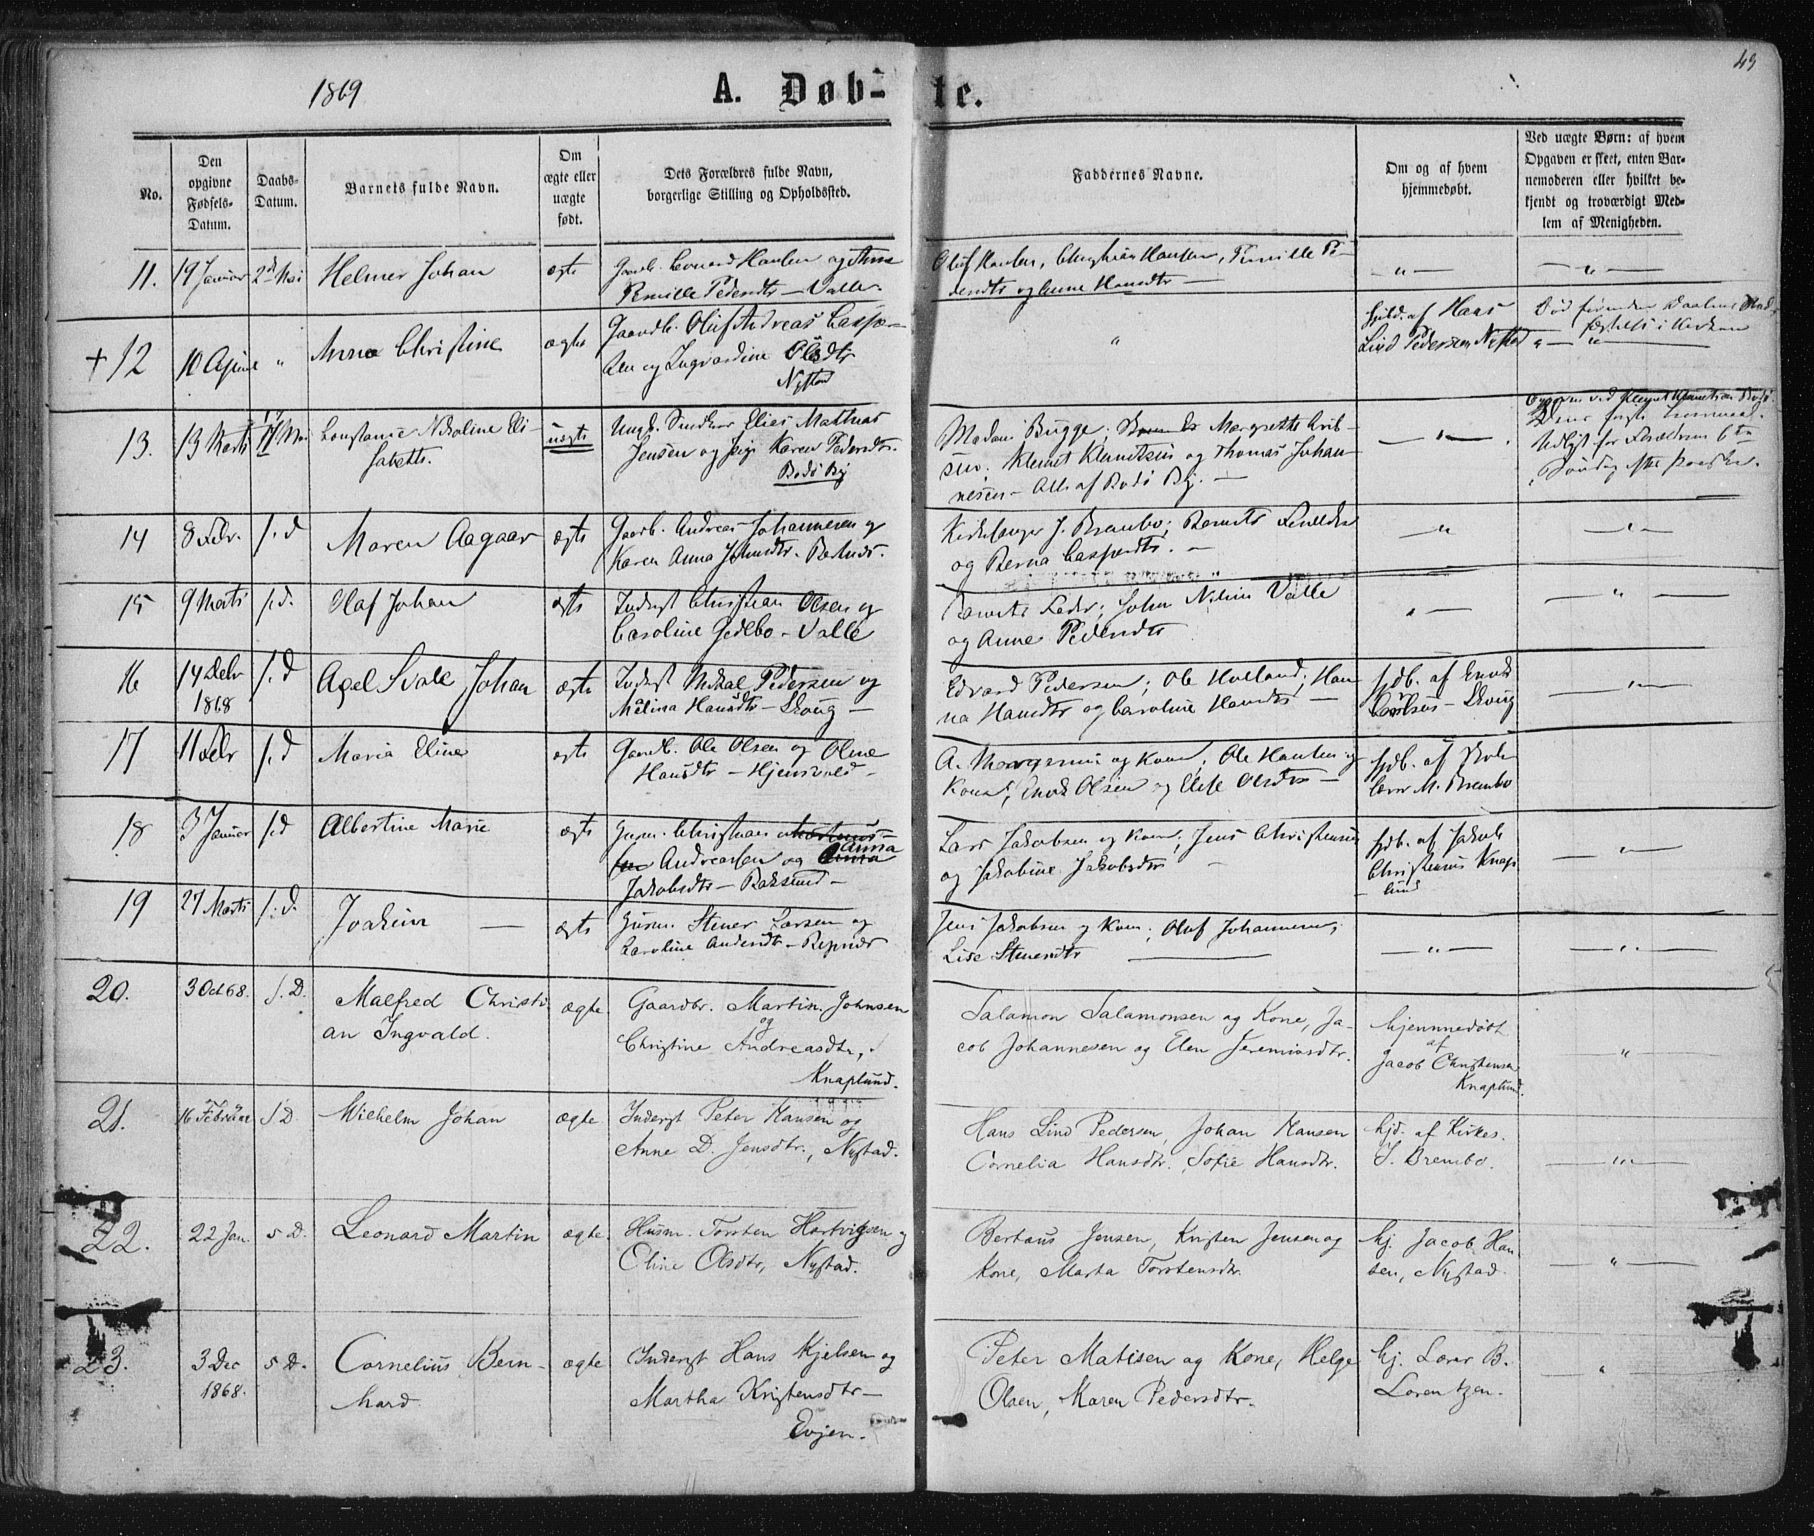 49
1869
A. Døbte.
No.
Den opgivne Fødsels-Datum.
Daabs-Datum.
Barnets fulde Navn.
Om ægte eller uægte født.
Dets Forældres fulde Navn, borgerlige Stilling og Opholdssted.
Faddernes Navne.
Om og af hvem hjemmedøbt.
Ved uægte Børn: af hvem Opgaven er skeet, enten Barnemoderen eller hvilket bekjendt og troværdigt Medlem af Menigheden.
11. 19 Januar 2d Mai Helmer Johan ægte Gaardb. Hansen og Anne
Pernille Pedersdtr – Valle
Oluf Hansen, Christian Hansen, Pernille Pe-
dersdtr og Anne Hansdtr —
— " —
+ 12 10 " Anna Christine ægte Gaardb. Oluf Andreas Caspe-
sen og Ingvardine Olsdtr
Nystad
"
af Hans
Lind Pedersen Nystad
13. 13 Marts 17 Mai Constanse Nikoline Eli-
sabeth.
uægte Ungk. Elias Mathias
Jensen og pige Karen Pedersdtr.
Bodø By
Madam Bugge, Margrethe
Klemet Klemetsen og Thomas Johan-
nesen – Alle af Bodø By. —
— " —
14 8 Febr. s. d Maren Aagaar ægte Gaardb. Andreas Johannesen og
Karen Anna
Kirkesanger J. Brembo;
og Berna Caspersdtr. —
— " —
15 9 Marts s. d. Olaf Johan ægte Inderst Christian Olsen og
Caroline Gedebo – Valle
John Valle
og Anne Pedersdtr
— " —
16 14 1868 s. d Axel Johan ægte Inderst Mikal Pedersen og
Melina Hansdtr – Skoug —
Edvard Pedersen; Ole Hovland; Han-
na Hansdtr og Caroline Hansdtr —
hjdb. af
– Skoug
— " —
17 11 Febr s. d Maria Eline ægte Gaardb. Ole Olsen og Oline
Hansdtr – Hjernvold –
og Kone, Ole Hansen og
Kone; Enok Olsen og Elise Olsdtr —
hjdb. af Skole-
lærer M. Brembo
18 3 Januar s. d Albertine Marie ægte Husm. Christian
Andreassen og Anna
Jakobsdtr –
Lars Jakobsen og Kone; Jens Christensen
og Jakobine Jakobsdtr —
hjdb. af Jakob
Christensen Knap-
lund
— " —
19 27 Marts s. d. Joakim — ægte Husm. Stener Larsen og
Caroline Andersdtr –
Jens Jakobsen og Kone; Oluf Johannesen;
Lise Stenersdtr —
— " —
20. 3 Oct 68. s. D. Malfred Christi-
an Ingvald.
ægte Gaardbr. Martin Johnsen
og
Christine Andreasdtr,
Knaplund.
Salamon Salamonsen og Kone, Ja-
cob Johannesen og Elen Jeremiasdtr.
hjemmedøbt
af
Jacob Christensen
Knaplund.
"
21. 16 Februar s D. Wilhelm Johan ægte Inderst Peter Hansen og
Anne D. Jensdtr., Nystad.
Hans Lind Pedersen, Johan Hansen
Cornelia Hansdtr. Sofie Hansdtr.
hjd. af Kirkes.
J. Brembo.
— " —
22. 22 Jan. s D. Leonard Martin ægte. Husm. Torsten Hartvigsen og
Oline Olsdtr, Nystad.
Bertaus Jensen, Kristen Jensen og
Kone, Marta Torstensdtr.
hj. Jacob Han-
sen, Nystad.
— " —
23. 3 Dec 1868. s D. Cornelius Bern-
hard
ægte Inderst Hans Kjelsen og
Martha Kristensdtr —
Evjen.
Peter Matisen og Kone, Helge
Olsen, Maren Pedersdtr.
hj. Lærer B.
Lorentzen.
"